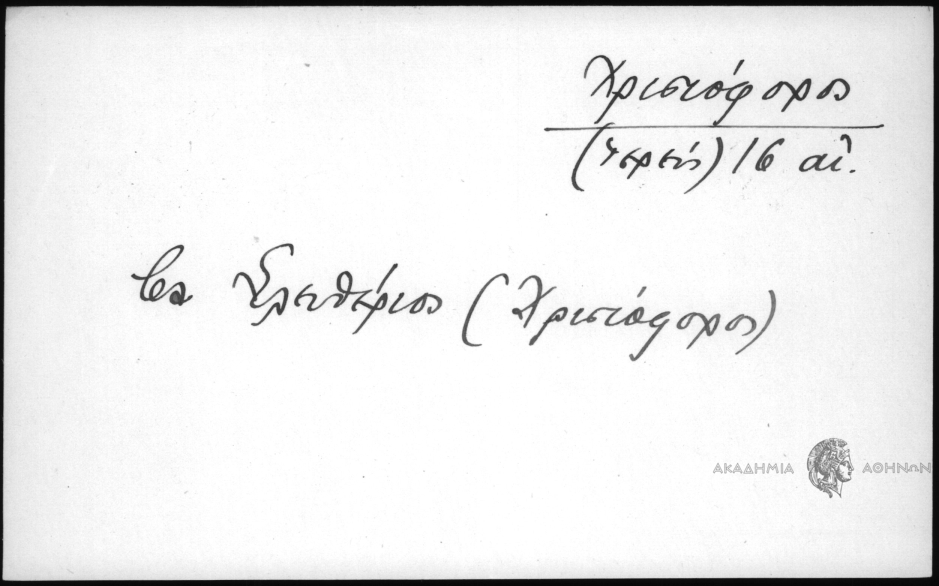 Χριστόφορος
(ιερεύς) 16 αἰ.
βλ Ἐλευθέριος (Χριστόφορος)
ΑΚΑΔΗΜΙΑ ΑΘΗΝΩΝ